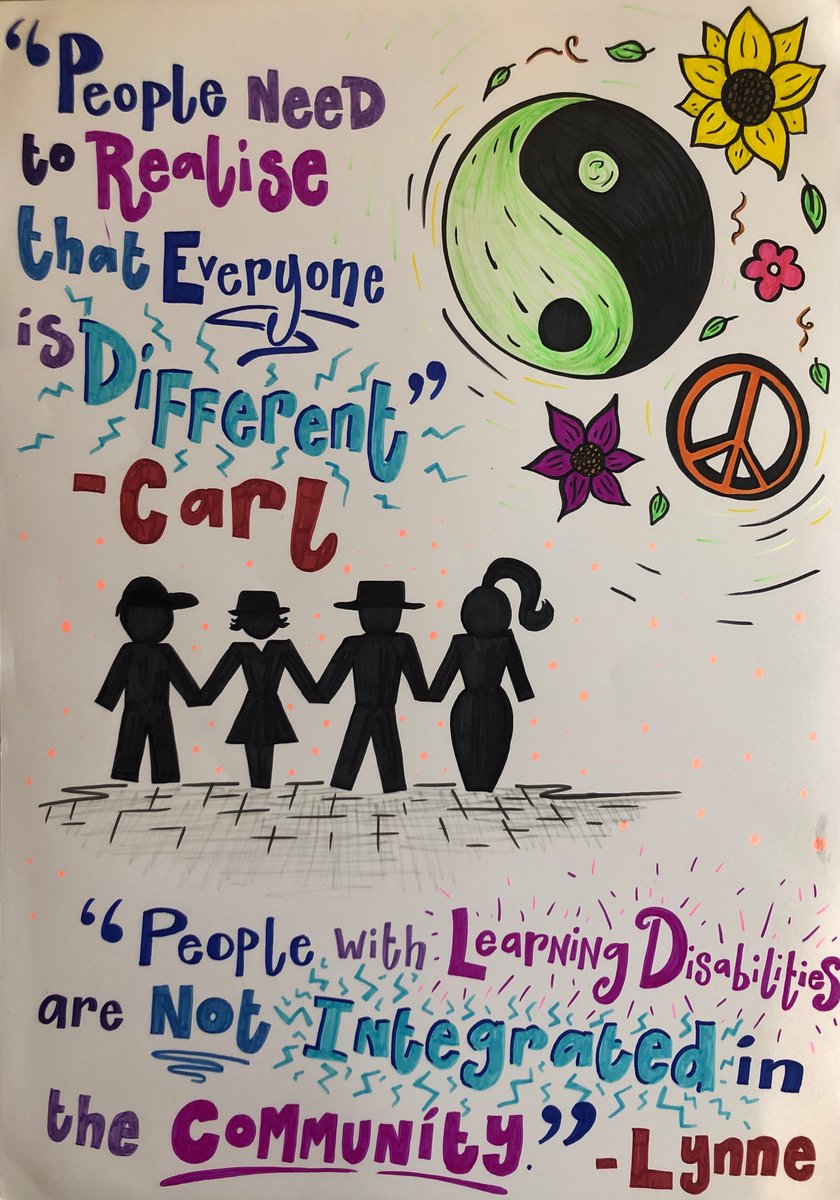 “People Need
to Realise
that Everyone
is Different”
-Carl
“People with Learning Disabilities
are Not Integrated in
the Community.” -Lynne